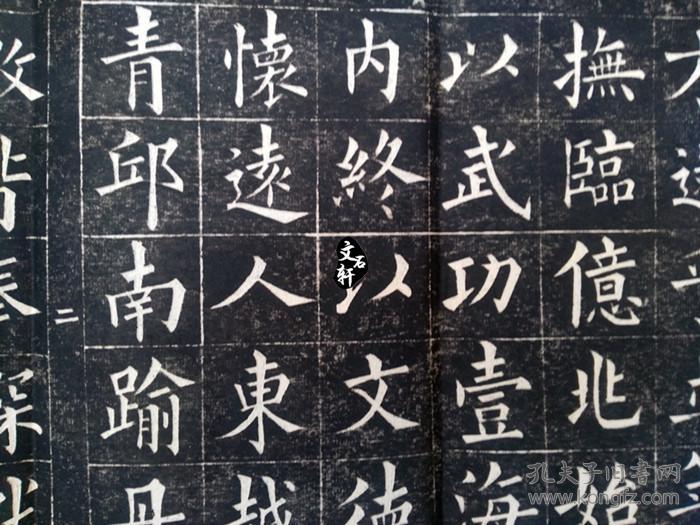 撫臨億北始
以武功壹海
内終以文德
懷遠人東越
青邱南踰丹
二
文石轩
孔夫子旧书网
www.kongfz.com